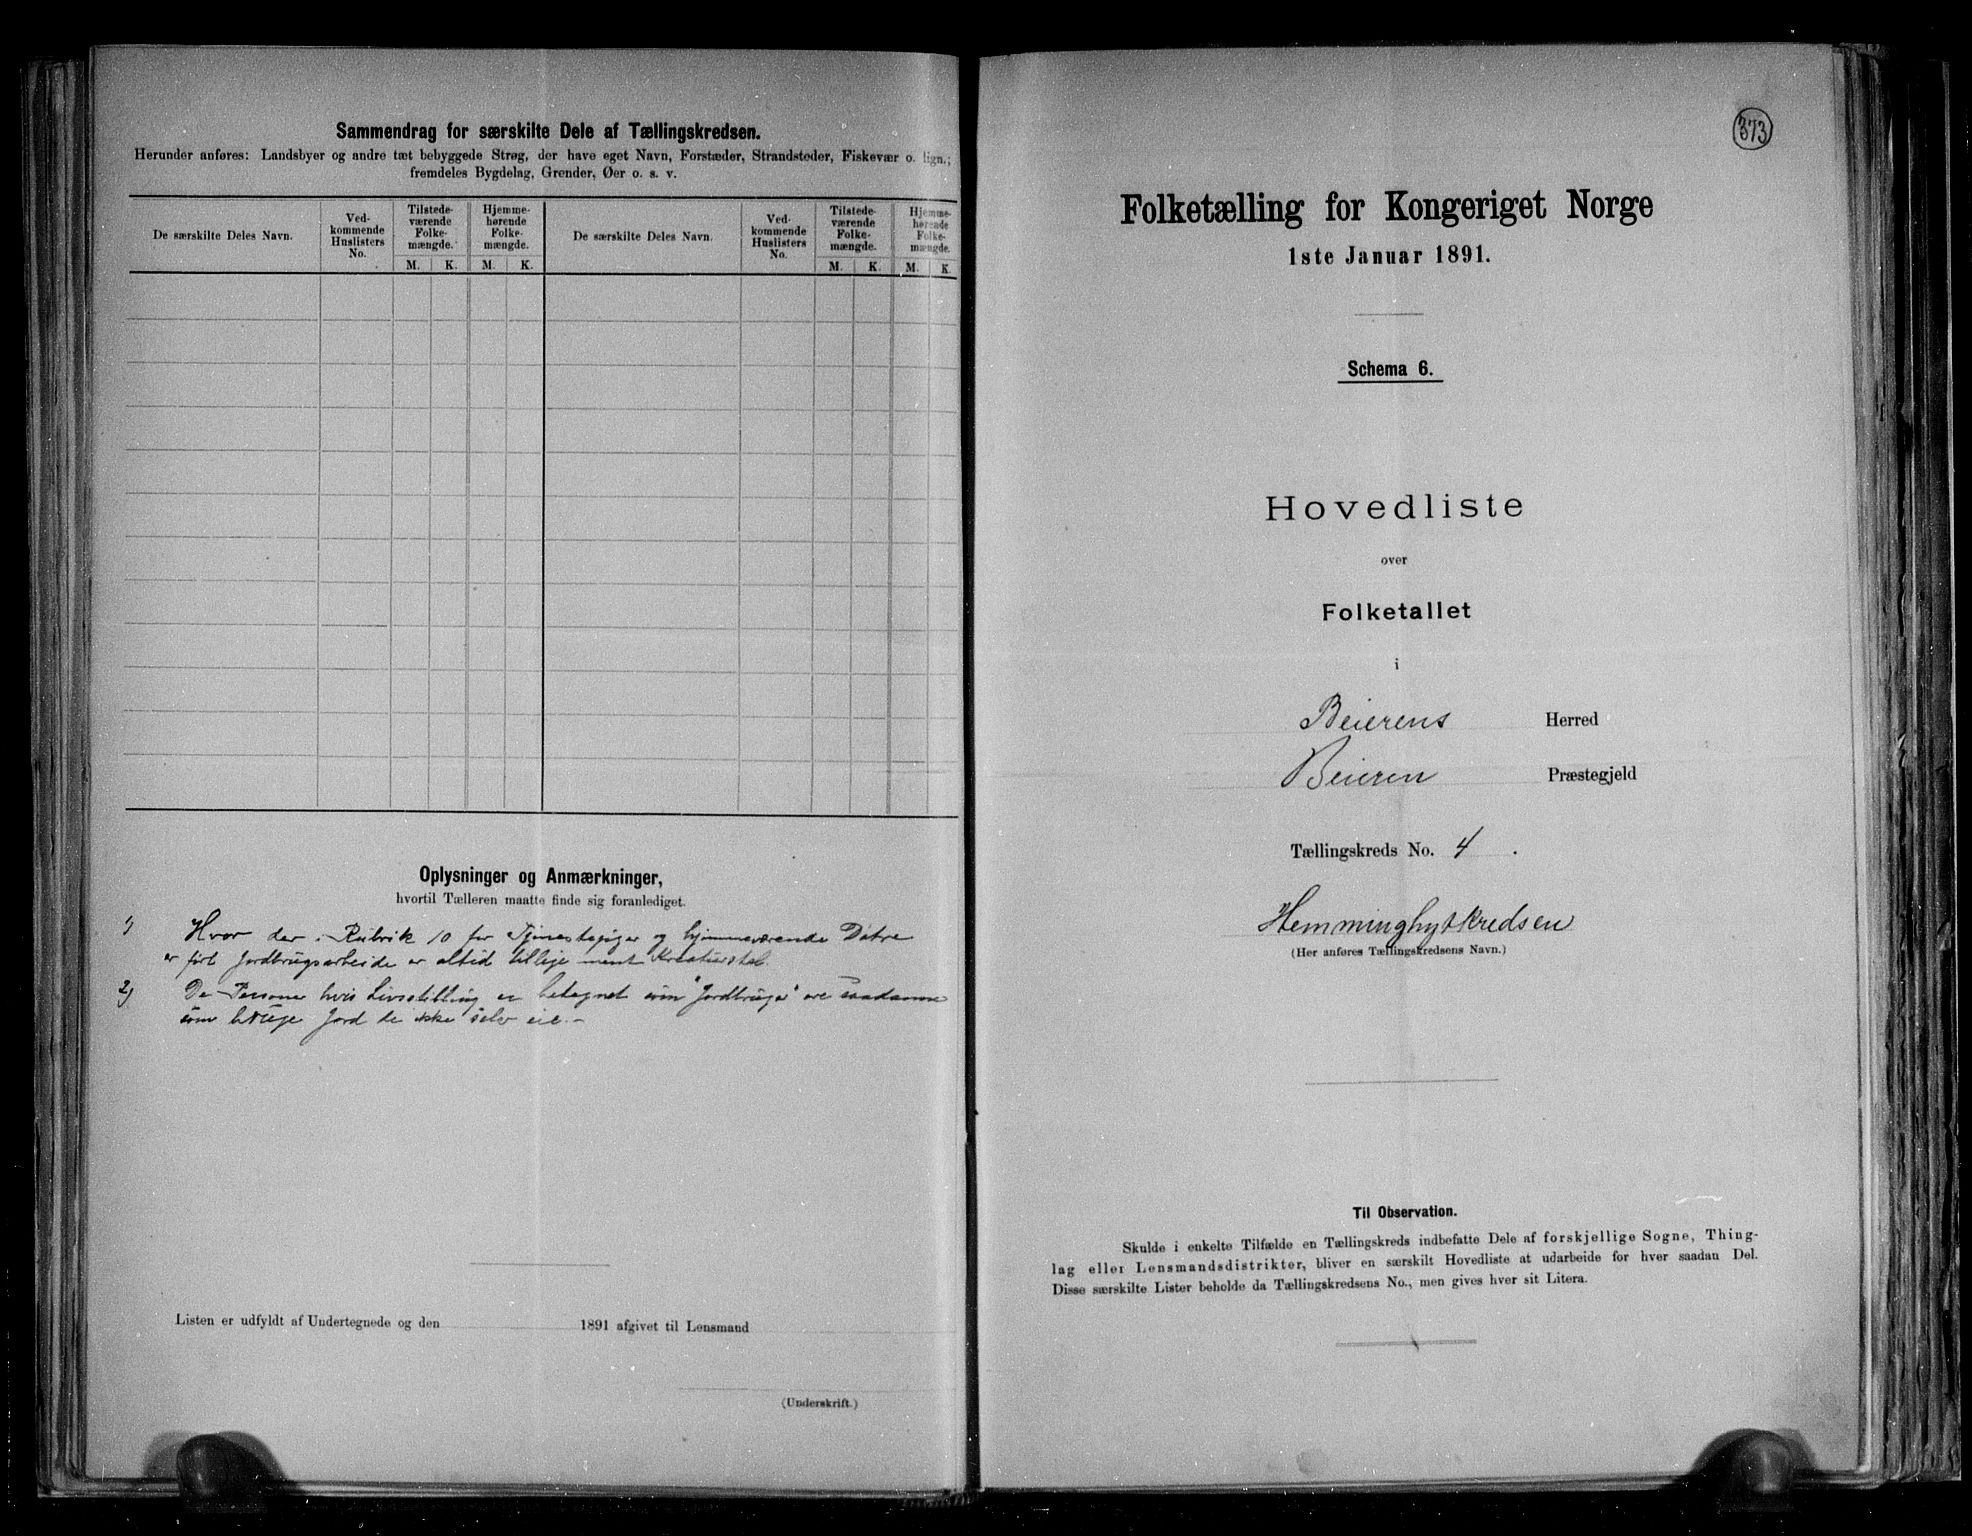 Sammendrag for særskilte Dele af Tællingskredsen.
Herunder anføres: Landsbyer og andre tæt bebyggede Strøg, der have eget Navn, Forstæder, Strandsteder, Fiskevær o. lign.;
fremdeles Bygdelag, Grender, Øer o. s. v.
De særskilte Deles Navn.
Ved-
kommende
Huslisters
No.
Tilstede-
værende
Folke-
mængde.
Hjemme-
hørende
Folke-
mængde.
M. K. M. K.
De særskilte Deles Navn.
Ved-
kommende
Huslisters
No.
Tilstede-
værende
Folke-
mængde.
Hjemme-
hørende
Folke-
mængde.
M. K. M. K.
Oplysninger og Anmærkninger,
hvortil Tælleren maatte finde sig foranlediget.
1) Hvor der i Rubrik 10 for Tjenestepiger og hjemmeværende Døtre
er ført Jordbrugsarbeide er altid tillige ment Kreaturstel.
2) De Personer hvis Livsstilling er betegnet som "Jordbruger" ere saadanne
som bruge Jord de ikke selv eie.-
Listen er udfyldt af Undertegnede og den 1891 afgivet til Lensmand
(Underskrift.)
373
Folketælling for Kongeriget Norge
1ste Januar 1891.
Schema 6.
Hovedliste
over
Folketallet
i
Beierens Herred
Beieren Præstegjeld
Tællingskreds No. 4.
Hemminghytkredsen
(Her anføres Tællingskredsens Navn.)
Til Observation.
Skulde i enkelte Tilfælde en Tællingskreds indbefatte Dele af forskjellige Sogne, Thing-
lag eller Lensmandsdistrikter, bliver en særskilt Hovedliste at udarbeide for hver saadan Del.
Disse særskilte Lister beholde da Tællingskredsens No., men gives hver sit Litera.